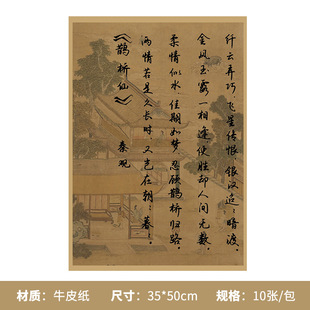 纤云弄巧，飞星传恨，银汉迢々暗渡。
金风玉露一相逢便胜却人间无数。
柔情似水佳期如梦，忍顾鹊桥归路。
两情若是久长时又岂在朝々暮々。
《鹊桥仙》 秦观
材质：牛皮纸 尺寸：35*50cm 规格：10张/包